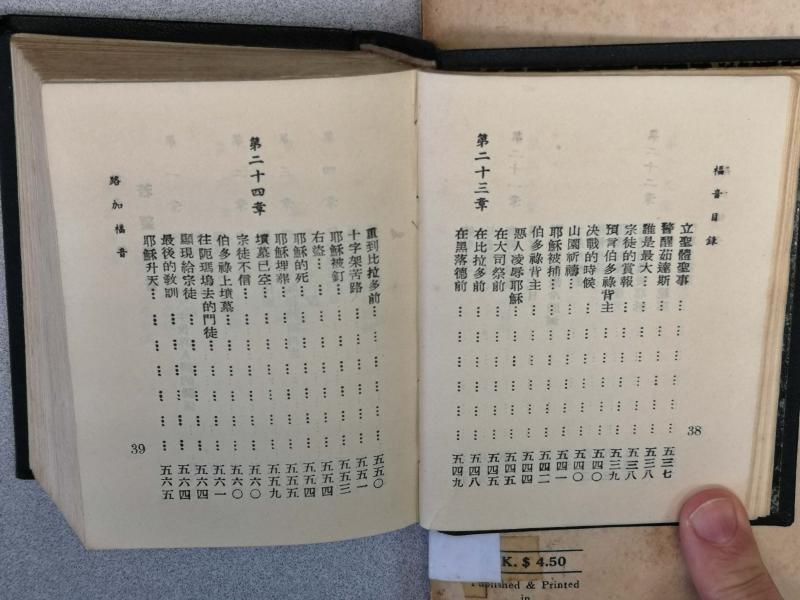 福音目錄
38
立聖體聖事 … … … … … 五三七
警醒茹達斯 … … … … … 五三八
誰是最大 … … … … … 五三八
宗徒的賞報 … … … … … 五三九
預言伯多祿背主 … … … … … 五四〇
決戰的時候 … … … … … 五四〇
山園祈禱 … … … … … 五四一
耶穌被捕 … … … … … 五四二
伯多祿背主 … … … … … 五四四
惡人凌辱耶穌 … … … … … 五四五
在大司祭前 … … … … … 五四五
第二十三章 在比拉多前 … … … … … 五四八
在黑落德前 … … … … … 五四九
重到比拉多前 … … … … … 五五〇
十字架苦路 … … … … … 五五一
耶穌被釘 … … … … … 五五三
右盜 … … … … … … 五五四
耶穌的死 … … … … … 五五四
耶穌埋葬 … … … … … 五五五
第二十四章 墳墓已空 … … … … … 五五九
宗徒不信 … … … … … 五六〇
伯多祿上墳墓 … … … … … 五六〇
往阨瑪塢去的門徒 … … … … 五六一
顯現給宗徒 … … … … … 五六四
最後的教訓 … … … … … 五六四
耶穌升天 … … … … … 五六五
路加福音
39
K. $ 4.50
Published & Printed
in